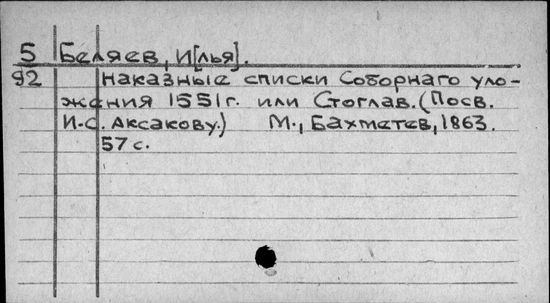 5 Беляев, И[лья].
92 Наказные списки Соборнаго уло-
жения 1551 г. или Стоглав. (Посв.
И.С. Аксакову.) М., Бахметев, 1863.
57 с.